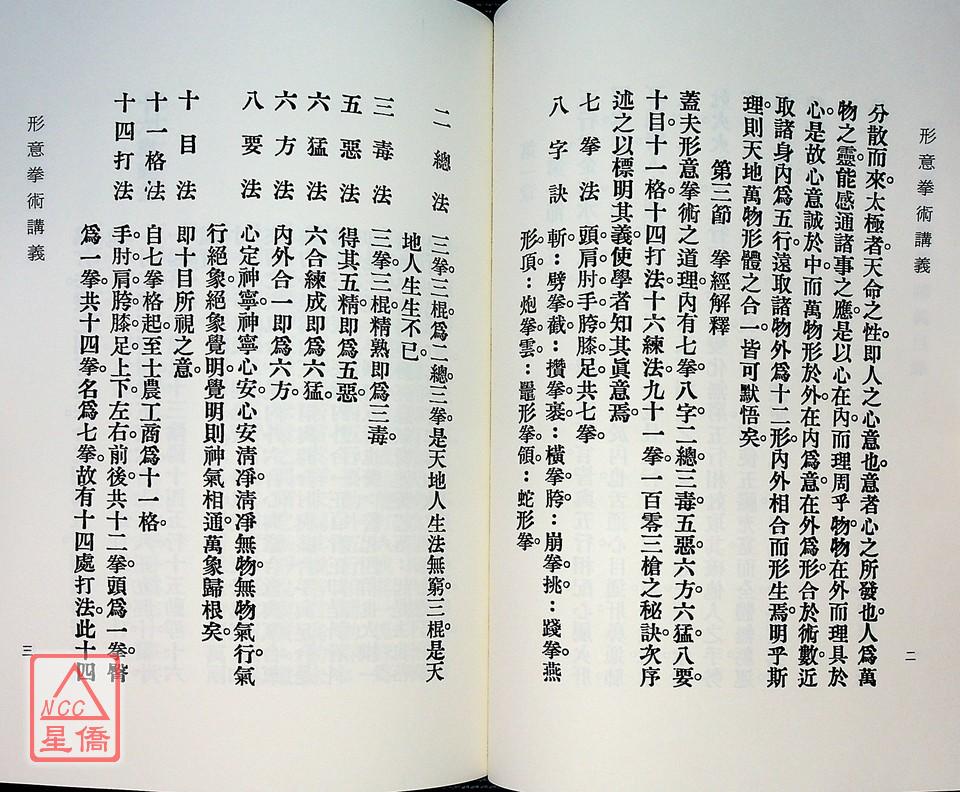 形意拳術講義
分散而來太極者天命之性即人之心意也意者心之所發也人爲萬
物之靈能感通諸事之應是以心在內而理周乎物物在外而理具於
心是故心意誠於中而萬物形於外在內爲意在外爲形合於術數近
取諸身內爲五行遠取諸物外爲十二形內外相合而形生焉明乎斯
理則天地萬物形體之合一皆可默悟矣。
第三節 拳經解釋
蓋夫形意拳術之道理內有七拳八字二總三毒五惡六方六猛八要
十目十一格十四打法十六練法九十一拳一百零三槍之秘訣次序
述之以標明其義使學者知其眞意焉
七拳法 頭肩肘手胯膝足共七拳。
八字訣 斬:劈拳截:攢拳裹:橫拳胯:崩拳挑:踐拳燕
形頂:炮拳雲:鼉形拳領:蛇形拳。
二
二總法 三拳三棍爲二總三拳是天地人生法無窮三棍是天
地人生生不已
三毒法 三拳三棍精熟即爲三毒。
五惡法 得其五精即爲五惡。
六猛法 六合練成即爲六猛。
六方法 內外合一即爲六方。
八要法 心定神寧神寧心安心安清凈清凈無物無物氣行氣
行絕象絕象覺明覺明則神氣相通萬象歸根矣。
十目法 即十目所視之意。
十一格法 自七拳格起至士農工商爲十一格。
十四打法 手肘肩胯膝足上下左右前後共十二拳頭爲一拳臀
爲一拳共十四拳名爲七拳故有十四處打法此十四
形意拳術講義
三
NCC
星僑